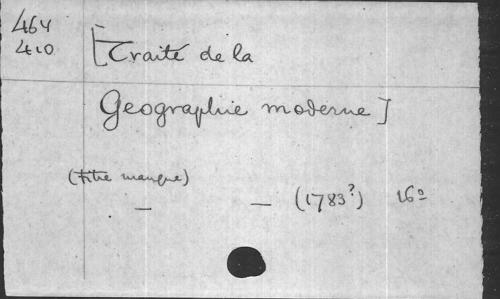 464
410
[Traité de la
Geographie moderne]
(titre manque)
— — (1783?) 16º